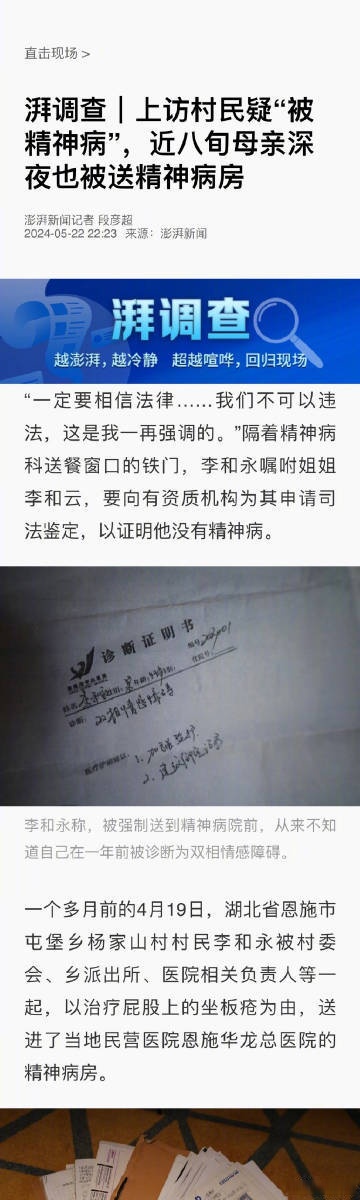 直击现场 >
湃调查｜上访村民疑“被
精神病”，近八旬母亲深
夜也被送精神病房
澎湃新闻记者 段彦超
2024-05-22 22:23 来源：澎湃新闻
湃调查
越澎湃，越冷静 超越喧哗，回归现场
“一定要相信法律……我们不可以违
法，这是我一再强调的。”隔着精神病
科送餐窗口的铁门，李和永嘱咐姐姐
李和云，要向有资质机构为其申请司
法鉴定，以证明他没有精神病。
诊断证明书
姓名
诊断：双相情感障碍
1、加强监护
2、建议
李和永称，被强制送到精神病院前，从来不知
道自己在一年前被诊断为双相情感障碍。
一个多月前的4月19日，湖北省恩施市
屯堡乡杨家山村村民李和永被村委
会、乡派出所、医院相关负责人等一
起，以治疗屁股上的坐板疮为由，送
进了当地民营医院恩施华龙总医院的
精神病房。